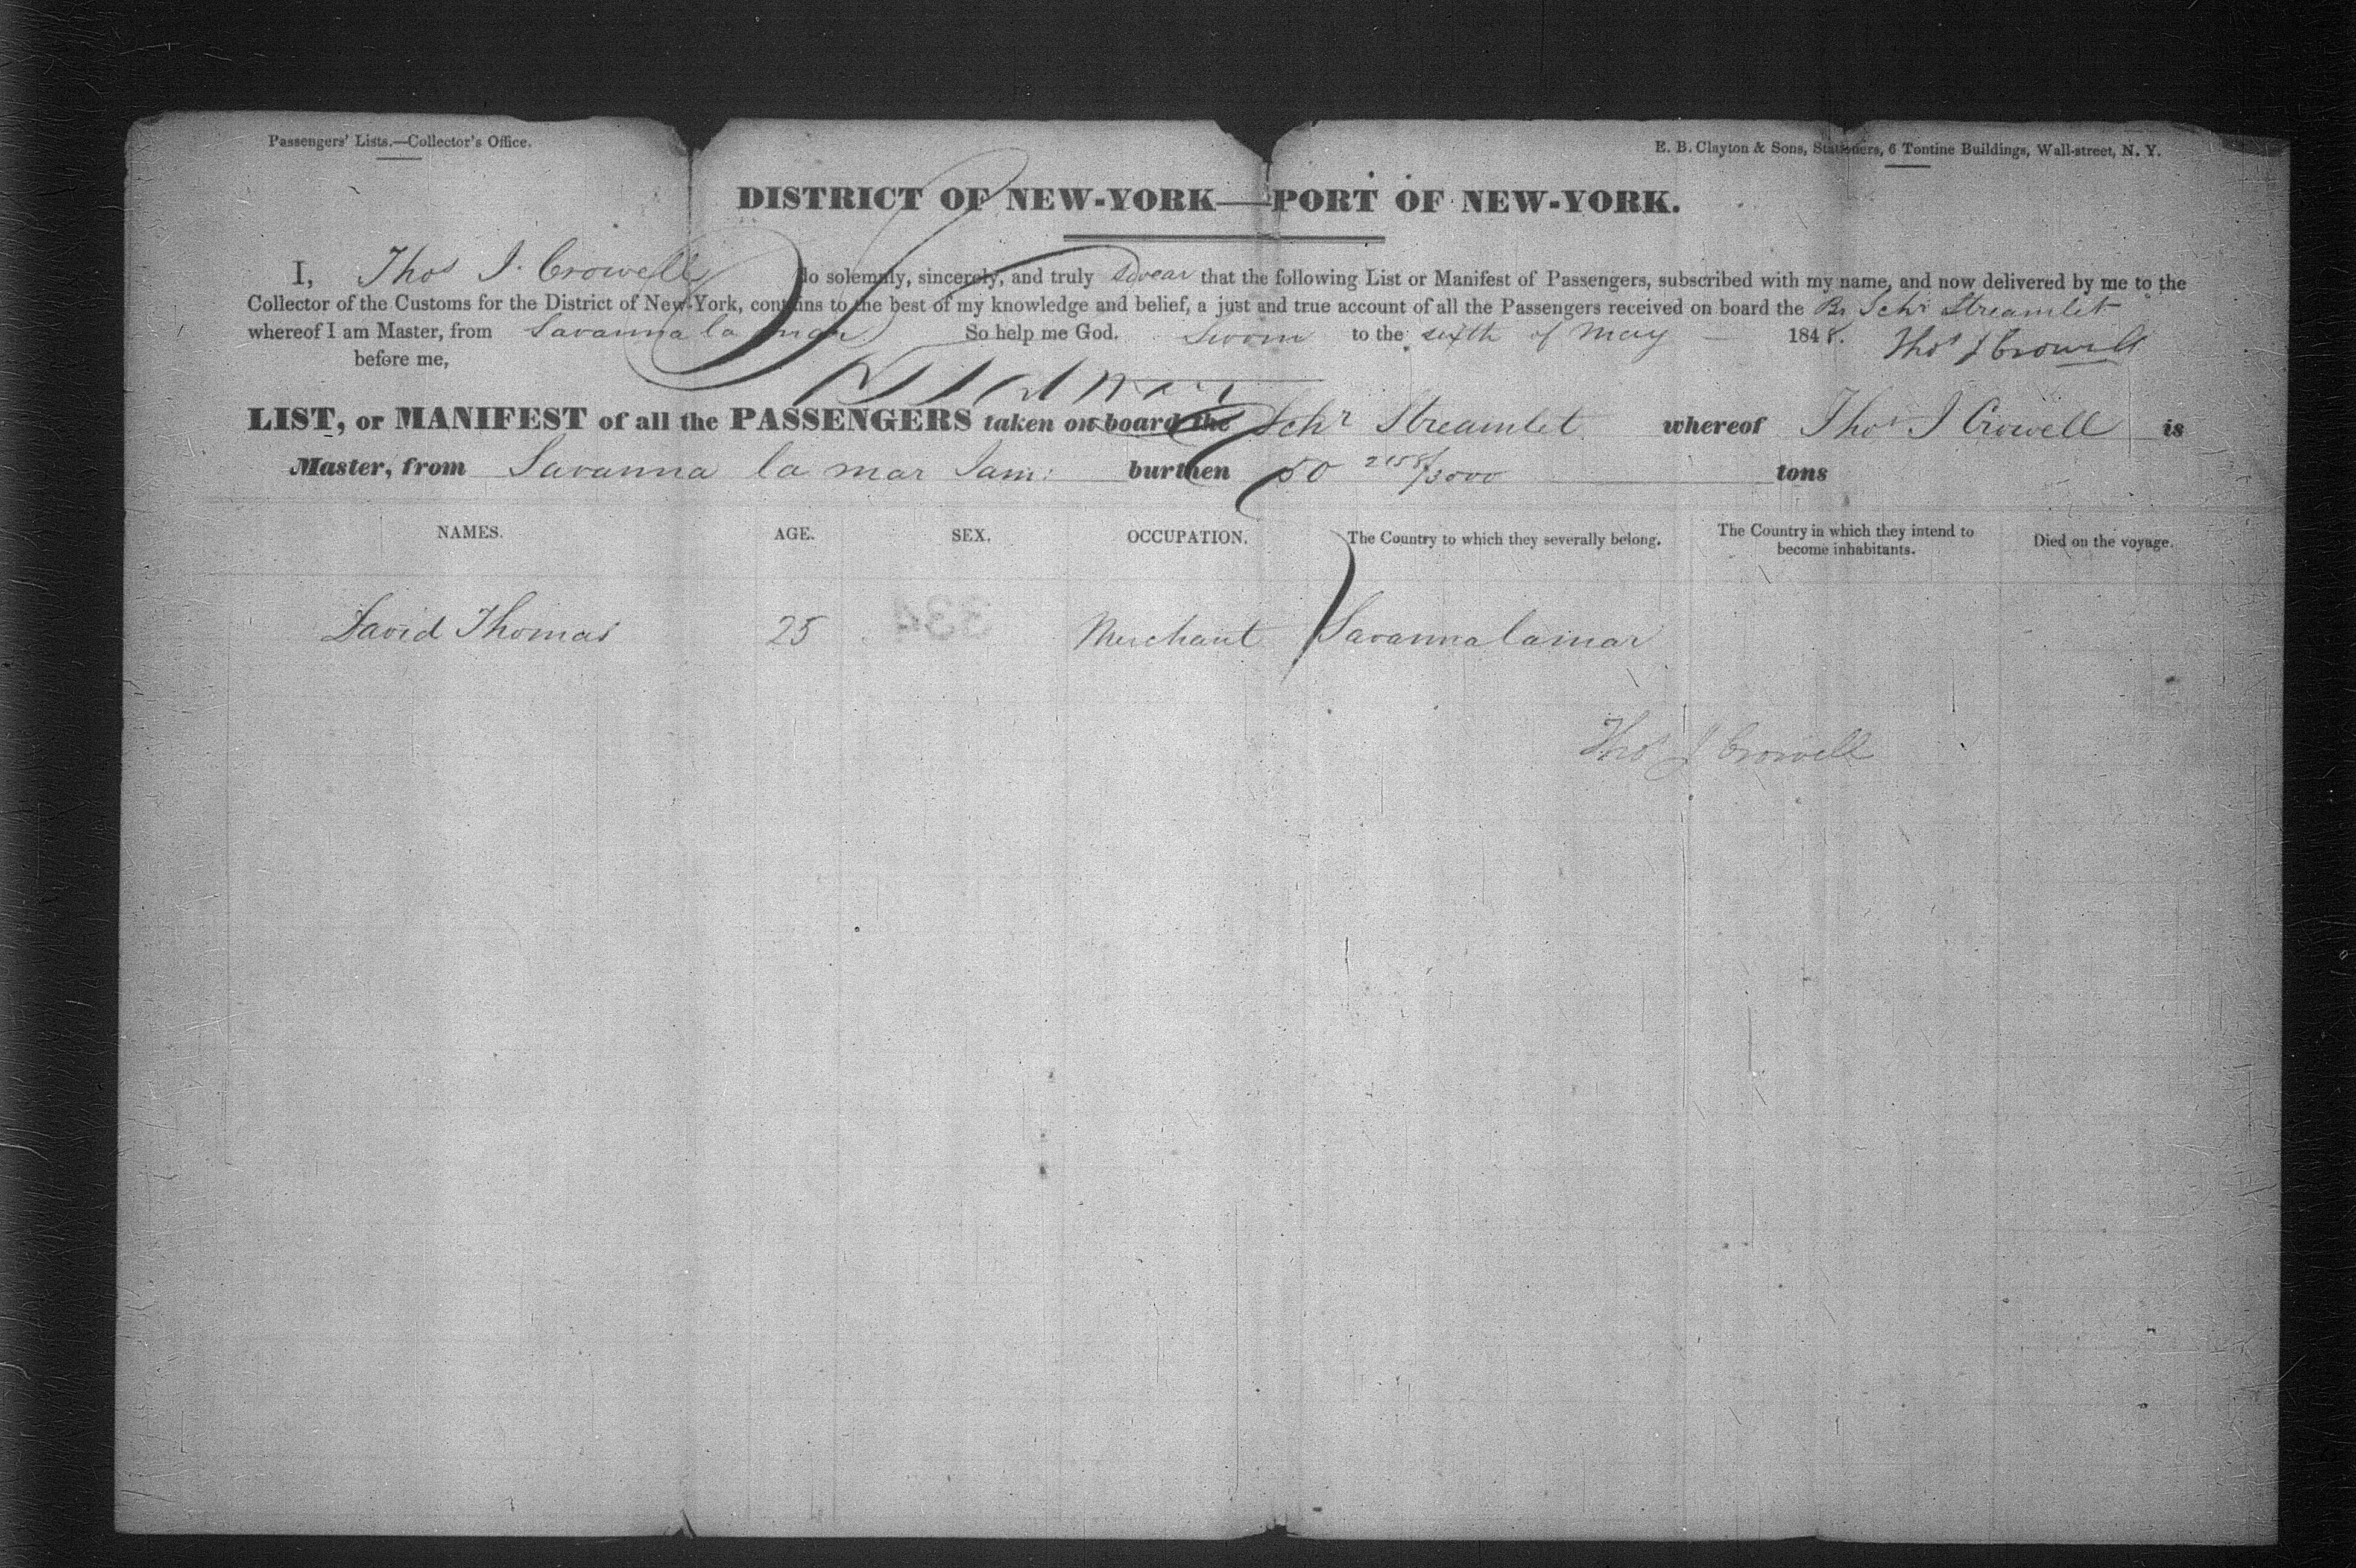 Passengers' Lists.—Collector's Office.
E. B. Clayton & Sons, Stationers, 6 Tontine Buildings, Wall-street, N. Y.
DISTRICT OF NEW-YORK—PORT OF NEW-YORK.
I, Thos J. Crowell do solemnly, sincerely, and truly Swear that the following List or Manifest of Passengers, subscribed with my name, and now delivered by me to the
Collector of the Customs for the District of New-York, contains to the best of my knowledge and belief, a just and true account of all the Passengers received on board the Br Schr Streamlet
whereof I am Master, from Savanna la mar So help me God. Sworn to the sixth of May 1848. Thos J Crowell
before me,
LIST, or MANIFEST of all the PASSENGERS taken on board the Schr Streamlet whereof Thos J Crowell is
Master, from Savanna la mar Jam: burthen 50 2158/3000 tons
NAMES. AGE. SEX. OCCUPATION. The Country to which they severally belong. The Country in which they intend to become inhabitants. Died on the voyage.
David Thomas 25 Merchant Savanna lamar
334
Thos J Crowell